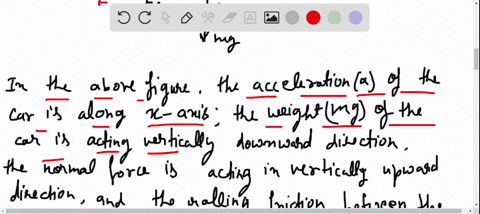 mg
In the above figure, the acceleration (a) of the
car is along x-axis; the weight (mg) of the
car is acting vertically downward direction,
the normal force is acting in vertically upward
direction, and the rolling friction between the